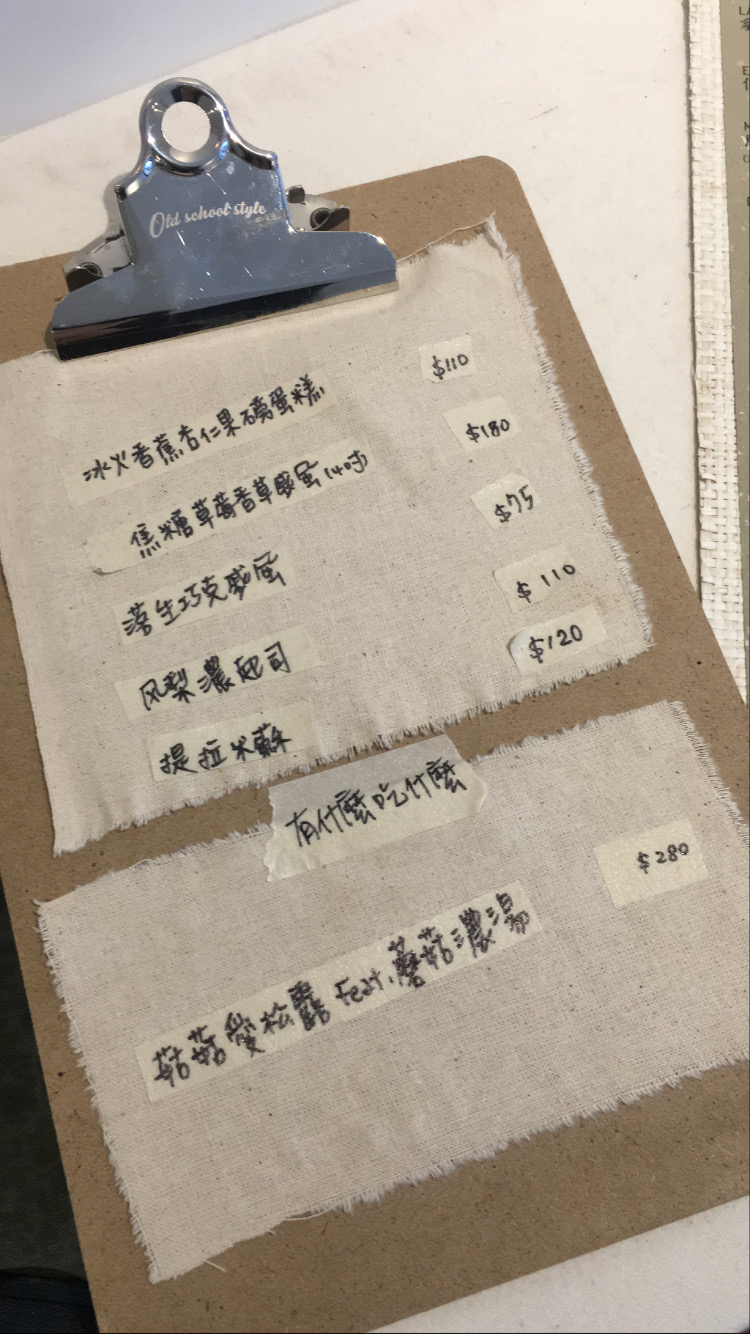 Old school style
冰火香蕉杏仁果磅蛋糕 $110
焦糖草莓香草戚風(4吋) $180
落生巧克戚風 $75
风梨濃起司 $110
提拉米蘇 $120
有什麼吃什麼
菇菇愛松露 Feat.蘑菇濃湯 $280